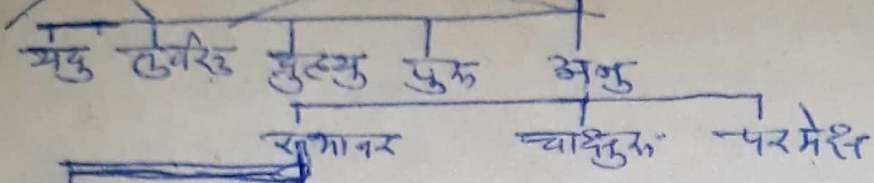 यदु तुर्वसु द्रुह्यु पुरू अनु
सभानर चाक्षुरू परमेक्ष